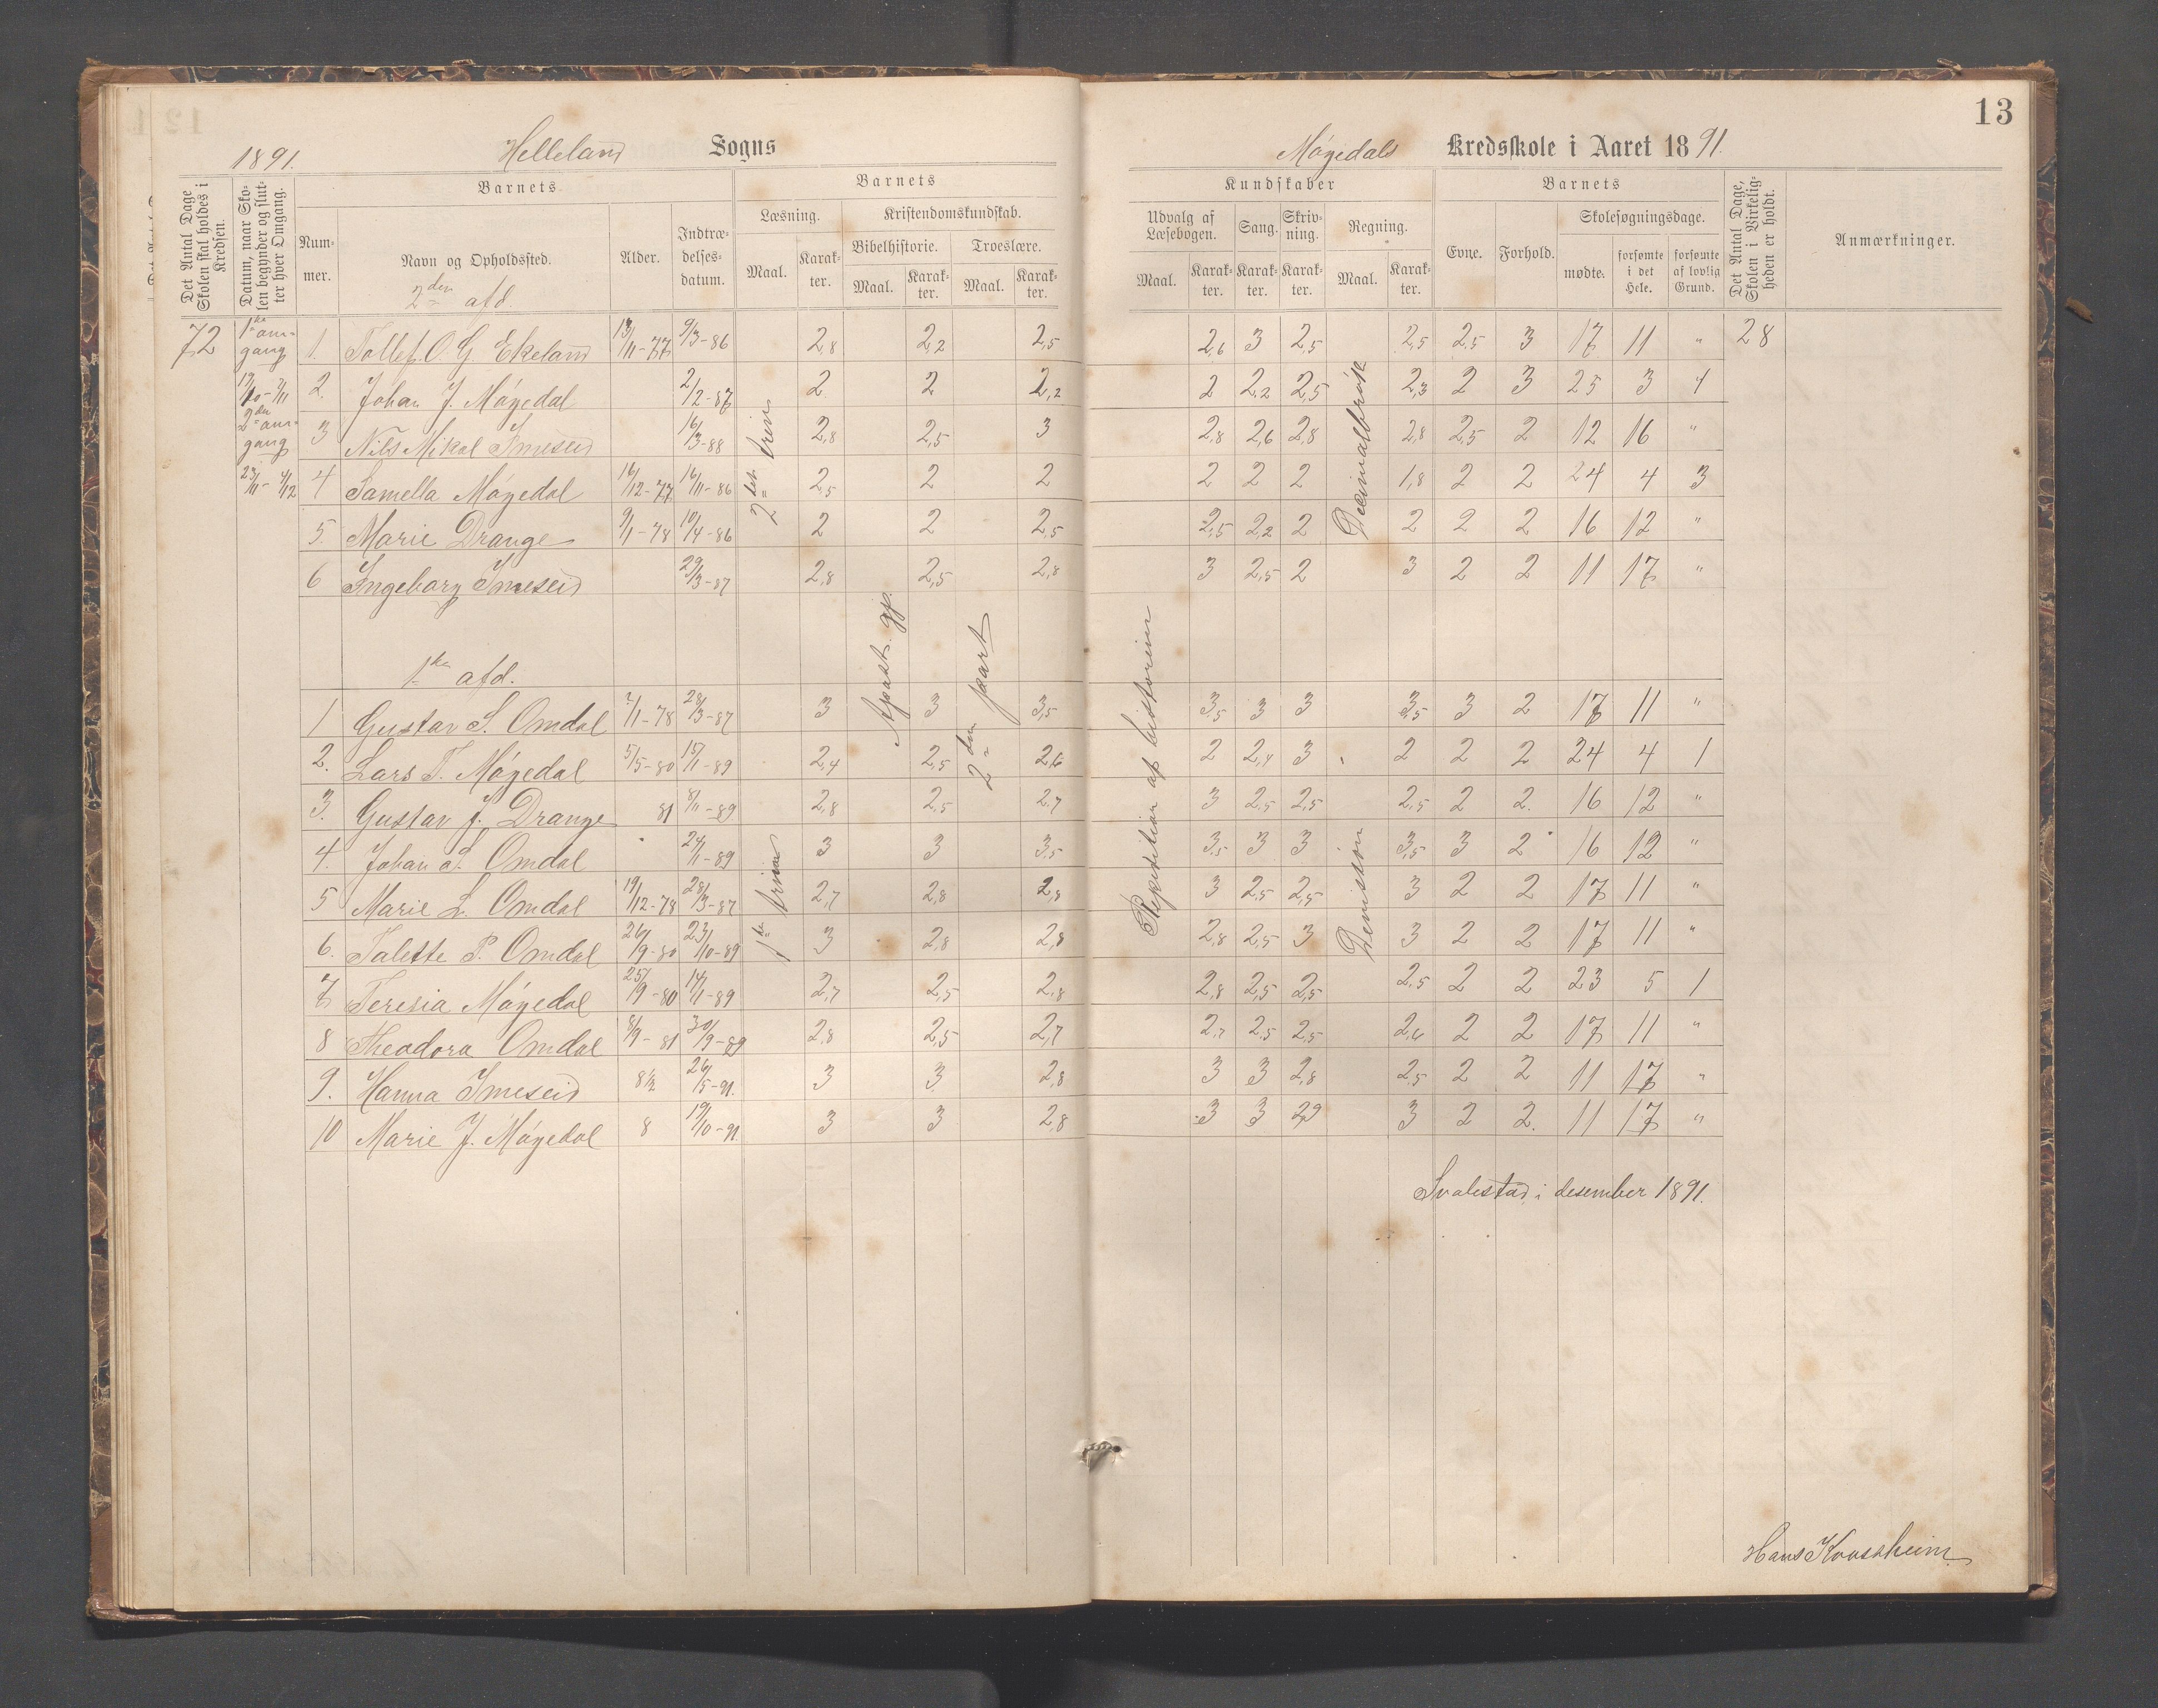 13
1891. Helleland Sogns
Møgedals Kredsskole i Aaret 1891.
Det Antal Dage Skolen skal holdes i Kredsen.
Datum, naar Skolen begynder og slutter hver Omgang.
Nummer.
Barnets
Navn og Opholdssted.
Alder.
Indtrædelsesdatum.
Barnets
Læsning.
Maal.
Karakter.
Kristendomskundskab.
Bibelhistorie.
Maal.
Karakter.
Troeslære.
Maal.
Karakter.
Kundskaber
Udvalg af Læsebogen.
Maal.
Karakter.
Sang.
Karakter.
Skrivning.
Karakter.
Regning.
Maal.
Karakter.
Barnets
Evne.
Forhold.
Skolesøgningsdage.
mødte.
forsømte i det Hele.
forsømte af lovlig Grund.
Det Antal Dage, Skolen i Virkeligheden er holdt.
Anmærkninger.
2den afd.
72 1ste omgang 19/10-7/11 2den omgang 23/11-4/12
1. Tollef O. G. Ekeland 13/11-77 9/3-86 2,8 2,2 2,5 2,6 3 2,5 2,5 2,5 3 17 11 " 28
2. Johan J. Møgedal 2/2-87 2 2 2,2 2 2,2 2,5 2,3 2 3 25 3 1
3 Nils Mikal Imeseid 16/3-88 2,8 2,5 3 2,8 2,6 2,8 2,8 2,5 2 12 16 "
4 Samella Møgedal 16/12-77 16/11-86 2,5 2 2 2 2 2 1,8 2 2 24 4 3
5. Marie Drange 9/1-78 10/4-86 2 2 2,5 2,5 2,2 2 2 2 2 16 12 "
6 Ingeborg Imeseid 29/3-87 2,8 2,5 2,8 3 2,5 2 3 2 2 11 17 "
2det trin
Decimalbrøk
1ste afd.
1 Gustav S. Omdal 7/1-78 28/3-87 3 3 3,5 3,5 3 3 3,5 3 2 17 11 "
2. Lars T. Møgedal 5/5-80 15/1-89 2,4 2,5 2,6 2 2,4 3 2 2 2 24 4 1
3. Gustav J. Drange 81 8/11-89 2,8 2,5 2,7 3 2,5 2,5 2,5 2 2. 16 12 "
4. Johan a.S. Omdal 24/1-89 3 3 3,5 3,5 3 3 3,5 3 2 16 12 "
5 Marie L. Omdal 19/12-78 28/3-87 2,7 2,8 2,8 3 2,5 2,5 3 2 2 17 11 "
6. Talette P. Omdal 26/9-80 23/10-89 3 2,8 2,8 2,8 2,5 3 3 2 2 17 11 "
7 Teresia Møgedal 25/9-80 14/1-89 2,7 2,5 2,8 2,8 2,5 2,5 2,5 2 2 23 5 1
8 Theodora Omdal 8/9-81 30/9-89 2,8 2,5 2,7 2,7 2,5 2,5 2,6 2 2 17 11 "
9. Hanna Imeseid 8½ 26/5-91. 3 3 2,8 3 3 2,8 2,5 2 2 11 17 "
10 Marie J. Møgedal 8 19/10-91. 3 3 2,8 3 3 2,9 3 2 2. 11 17 "
1ste trin
Apost. gj.
2den part
Repetition af historien
Svalestad i desember 1891.